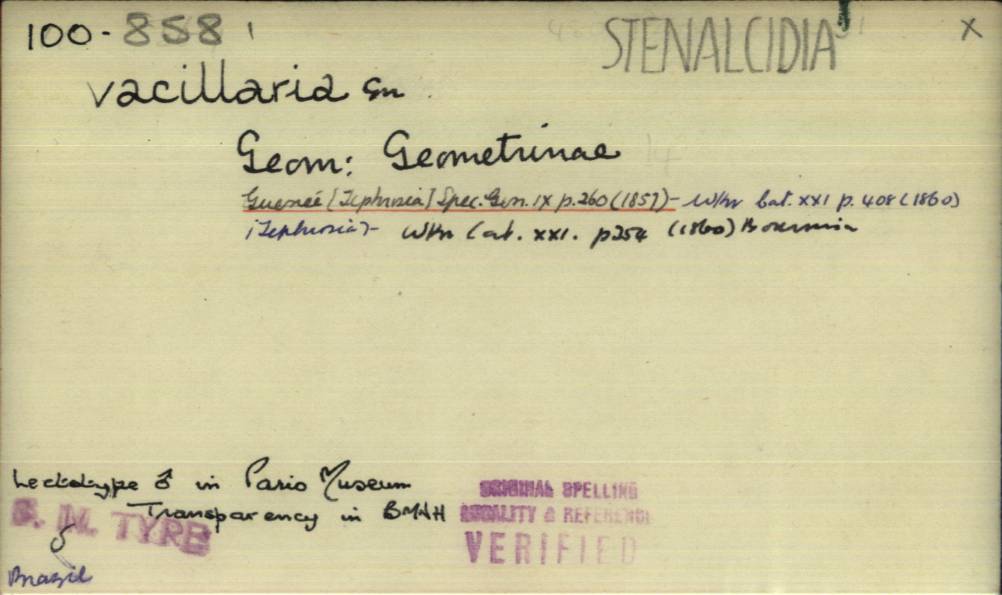 100-858 STENALCIDIA X
vacillaria Gn
Geom: Geometrinae
Gueneé [Tephrosia] Spec. Gen. IX p.260 (1857)- Wkr Cat. XXI p. 408 (1860)
[Tephrosia]- Wkr Cat. XXI. p254 (1860) Boarmia
Lectotype ♂ in Paris Museum
Transparency in BMNH
B. M. TYPE
♂
Brazil
ORIGINAL SPELLING
LOCALITY & REFERENCE
VERIFIED